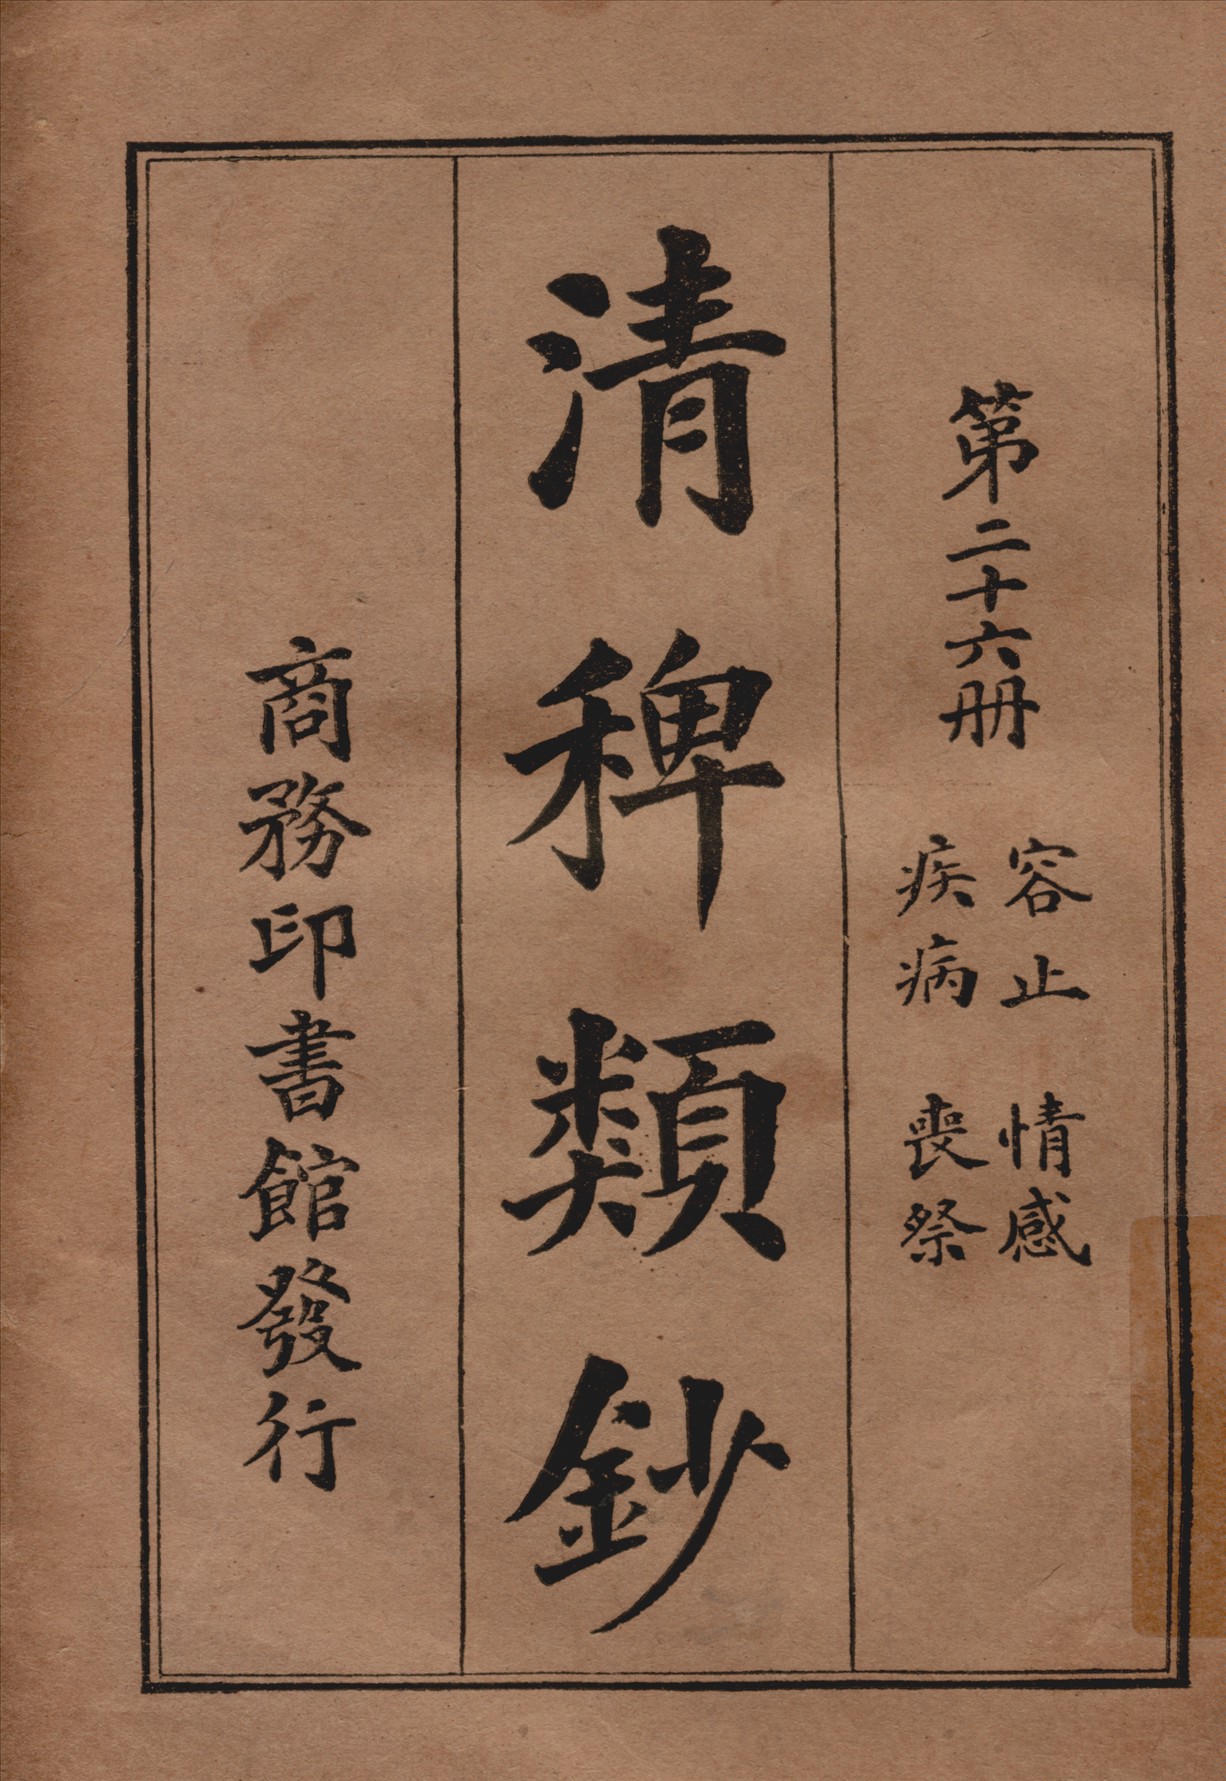 第二十六册
容止 情感
疾病 喪祭
清稗類鈔
商務印書館發行